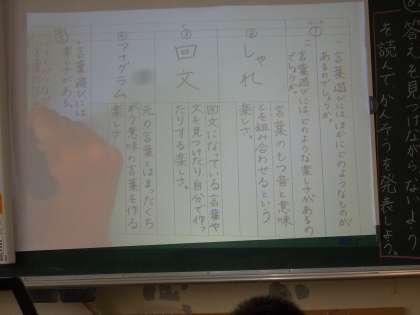 答えを見つけながら
を読んでかんそうを発表しよう。
①
言葉遊びにはほかにどのようなものが
あるのでしょうか。
言葉遊びにはどのような楽しさがあるの
でしょうか。
②
しゃれ
言葉のもつ音と意味
とを組み合わせるという
楽しさ。
③
回文
回文になっている言葉や
文を見つけたり自分で作っ
たりする楽しさ。
④
アナグラム
元の言葉とはまったくち
がう意味の言葉を作る
楽しさ
⑤
言葉遊びには
楽しさがある